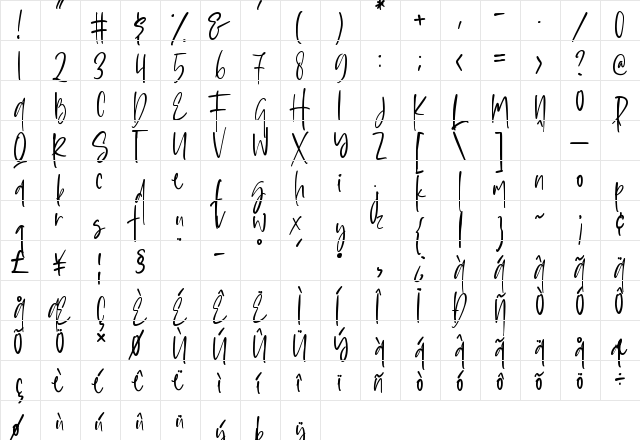 ! " # $ % & ' ( ) * + , - . / 0
1 2 3 4 5 6 7 8 9 : ; < = > ? @
a B C D E F G H I J K L M N O P
Q R S T U V W X Y Z [ \ ] —
a b c d e f g h i j k l m n o p
q r s t u v w x y z { | } ~ ¡ ¢
£ ¥ ¦ § ¨ - ° ´ · ¸ ¿ à á â ã ä
å Æ Ç È É Ê Ë Ì Í Î Ï Ð ñ Ò Ó Ô
Õ Ö × Ø Ù Ú Û Ü Ý à á â ã ä å æ
ç è é ê ë ì í î ï ñ ò ó ô õ ö ÷
ø ù ú û ü ý þ ÿ